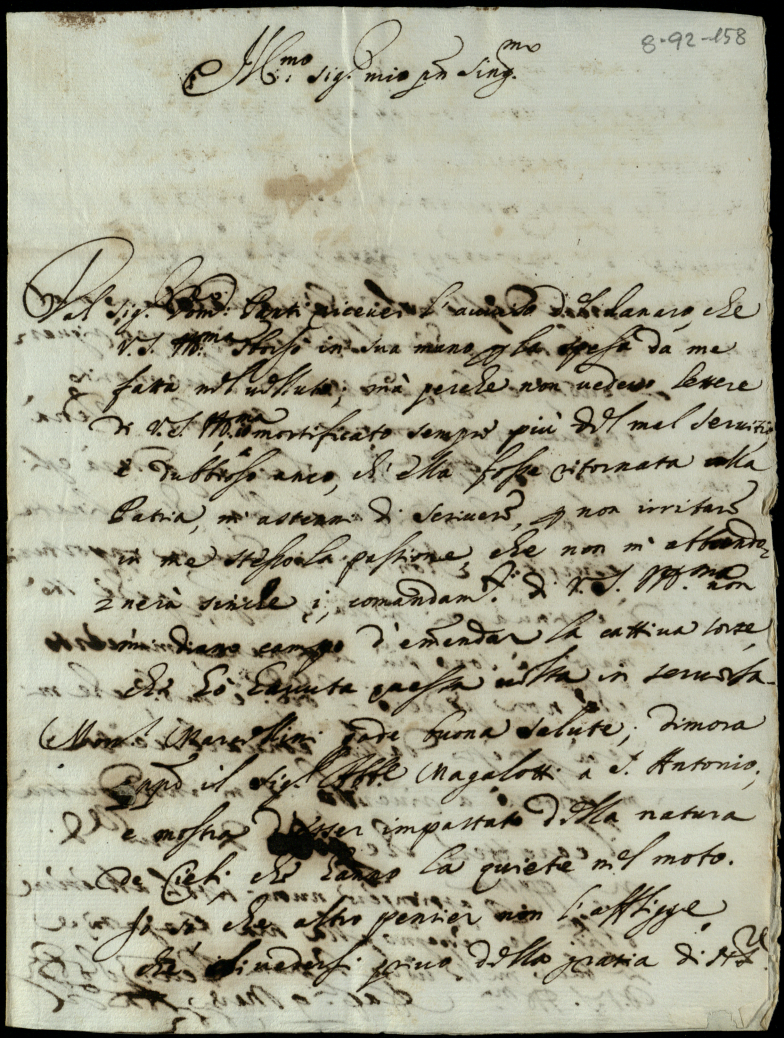 8-92-158
Ill.mo sig.r mio pn sing.mo
Dal sig.r Conti ricever l'aviso del danaro, che
V. S. Ill.ma in sua mano la spesa da me
fatta nel velluto; mà perche non vedevo lettere
di V. S. Ill.ma mortificato sempre più del mal servitio
e dubbioso anco, ch'ella fosse ritornata alla
Patria, m'astenni di scrivere, p non irritare
in me stesso la passione, che non m'abbando
nerà sinche i comandam.ti di V. S. Ill.ma non
mi diano campo d'emendar la cattiva sorte,
che hò havuta questa volta in servirla.
Mons.r gode buona salute; dimora
il sig.r Magalotti a S. Antonio,
e mostra d'esser impastato della natura
de Cieli che hanno la quiete nel moto.
Io sò che altro pensier non l'affligge,
che il vedersi privo della gratia di